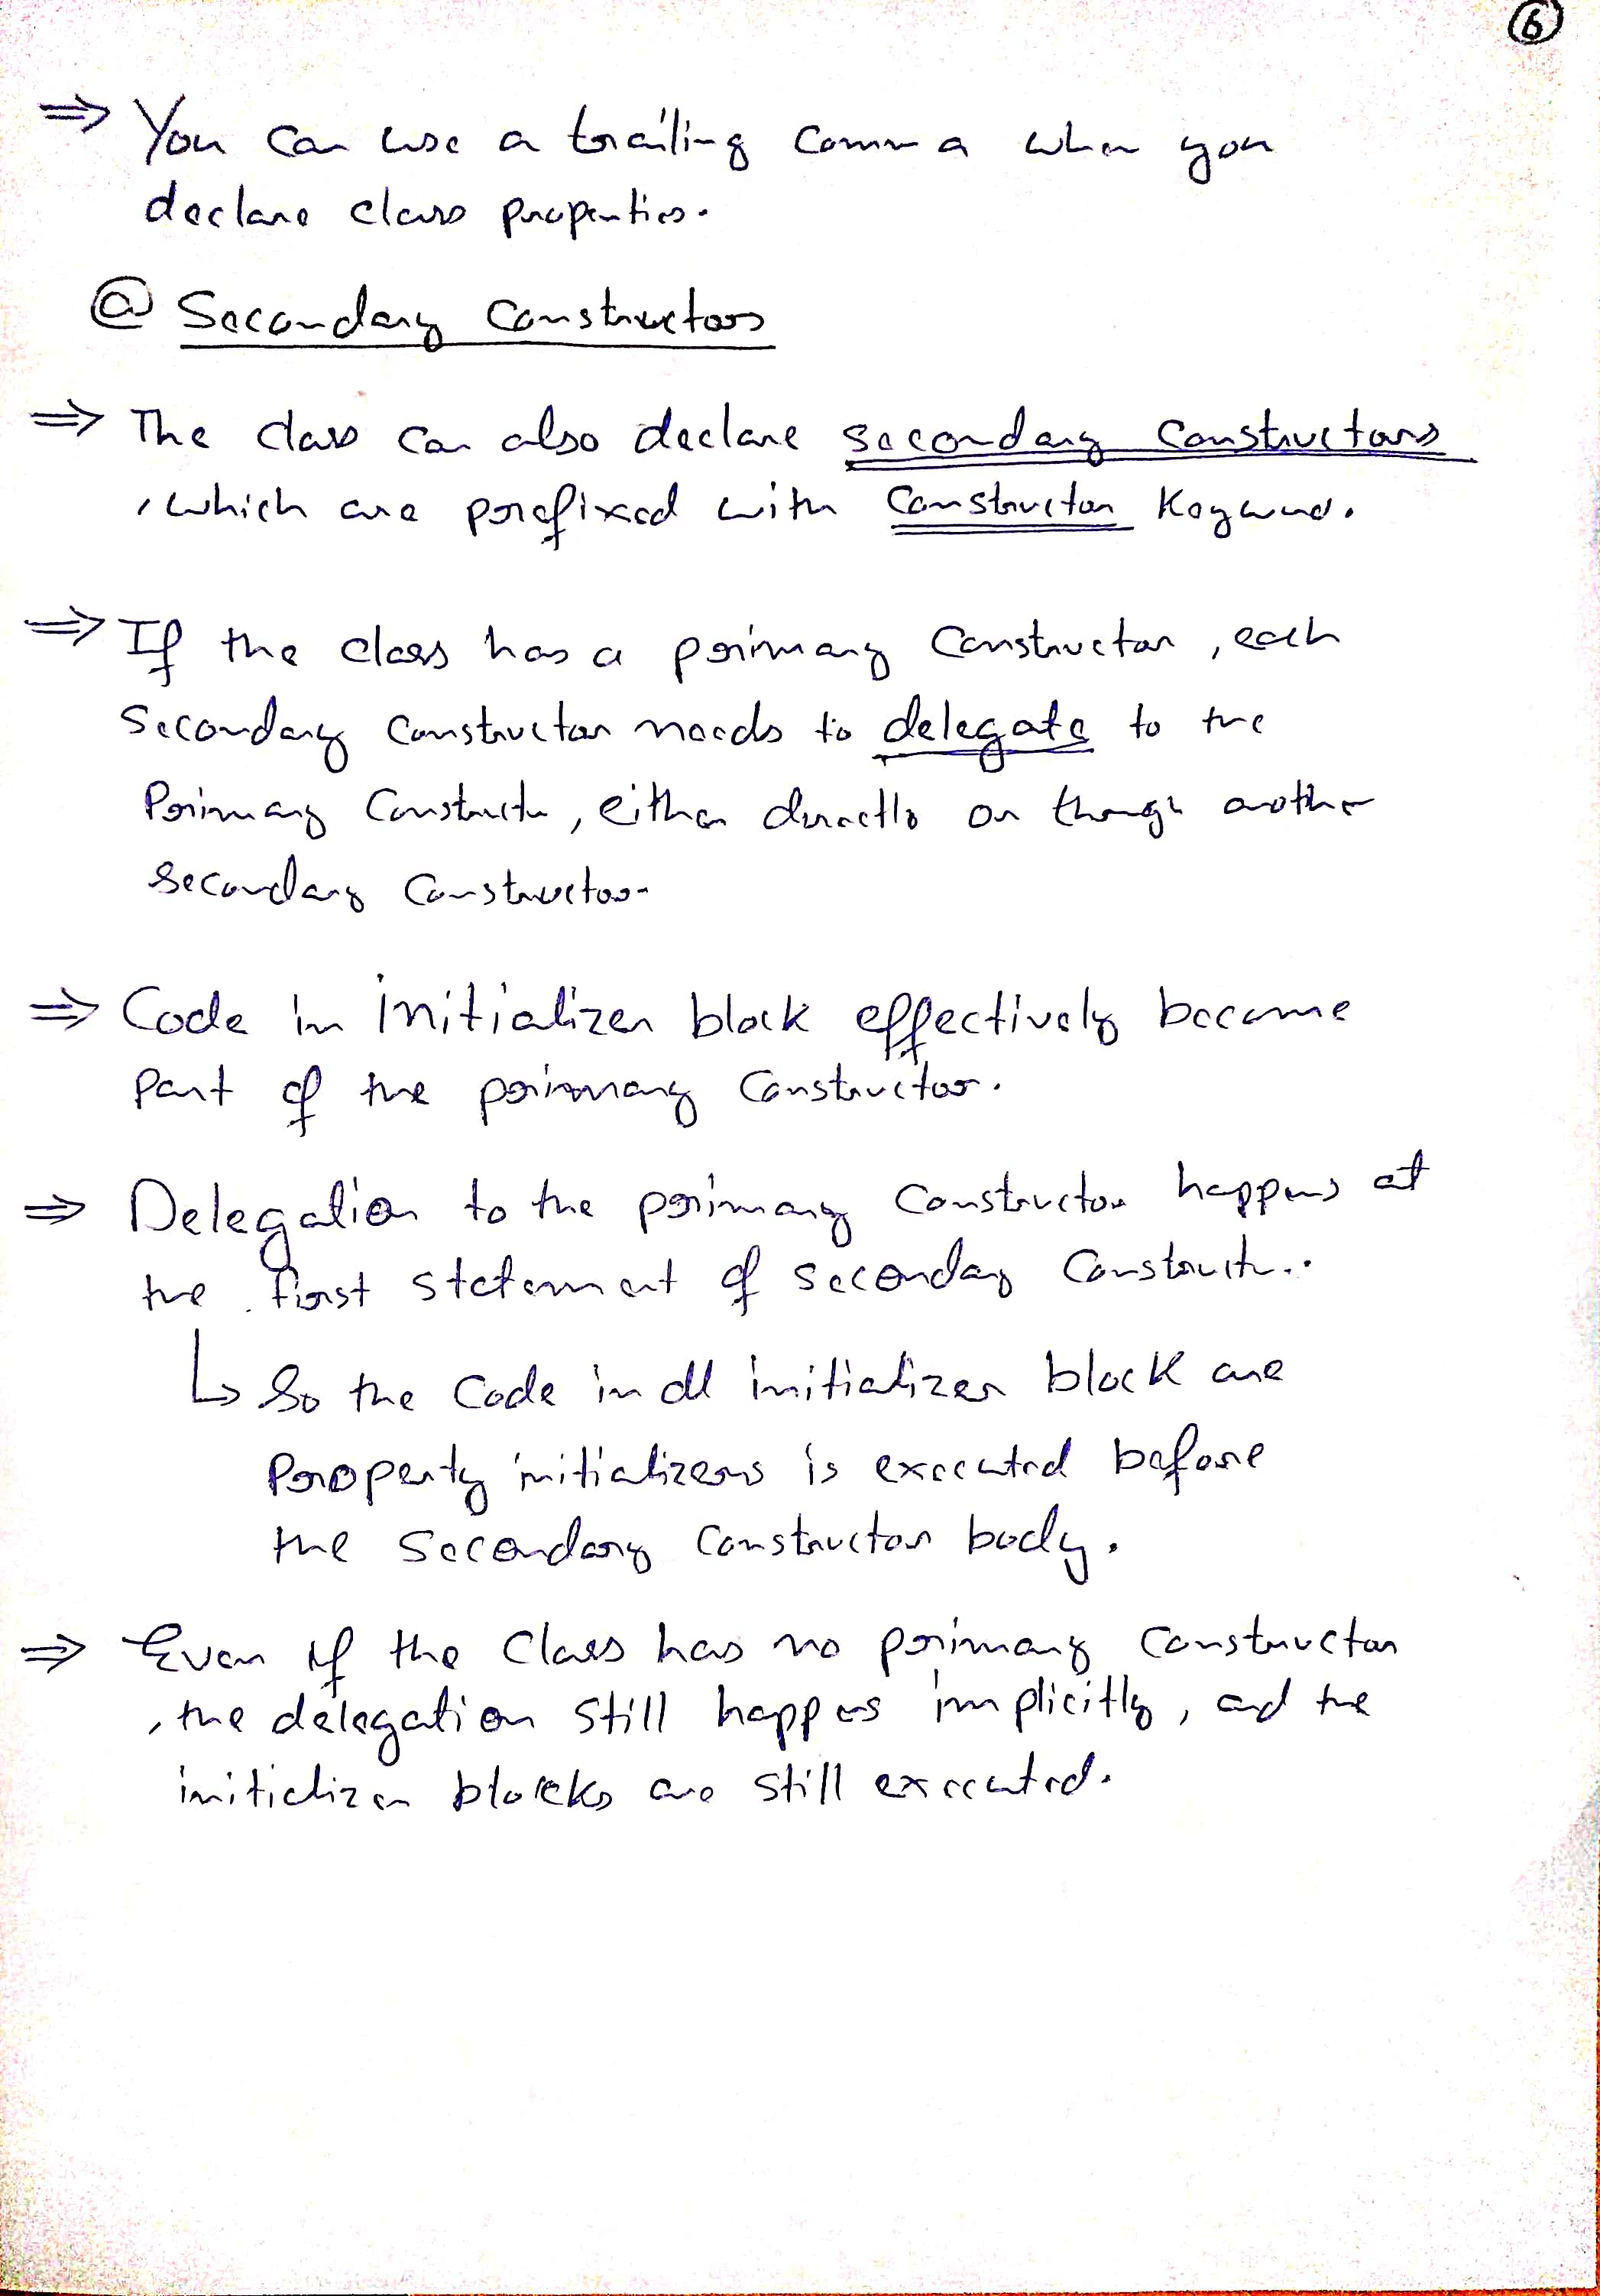 6
⇒ You can use a trailing comma when you
declare class properties.
@ Secondary Constructors
⇒ The class can also declare secondary constructors
, which are prefixed with constructor keyword.
⇒ If the class has a primary constructor, each
secondary constructor needs to delegate to the
Primary Constructor, either directly or through another
secondary constructor.
⇒ Code in initializer block effectively become
part of the primary constructor.
⇒ Delegation to the primary constructor happens at
the first statement of secondary constructor..
↳ So the code in all initializer block are
Property initializers is executed before
the secondary constructor body.
⇒ Even if the class has no primary constructor
, the delegation still happens implicitly, and the
initializer blocks are still executed.